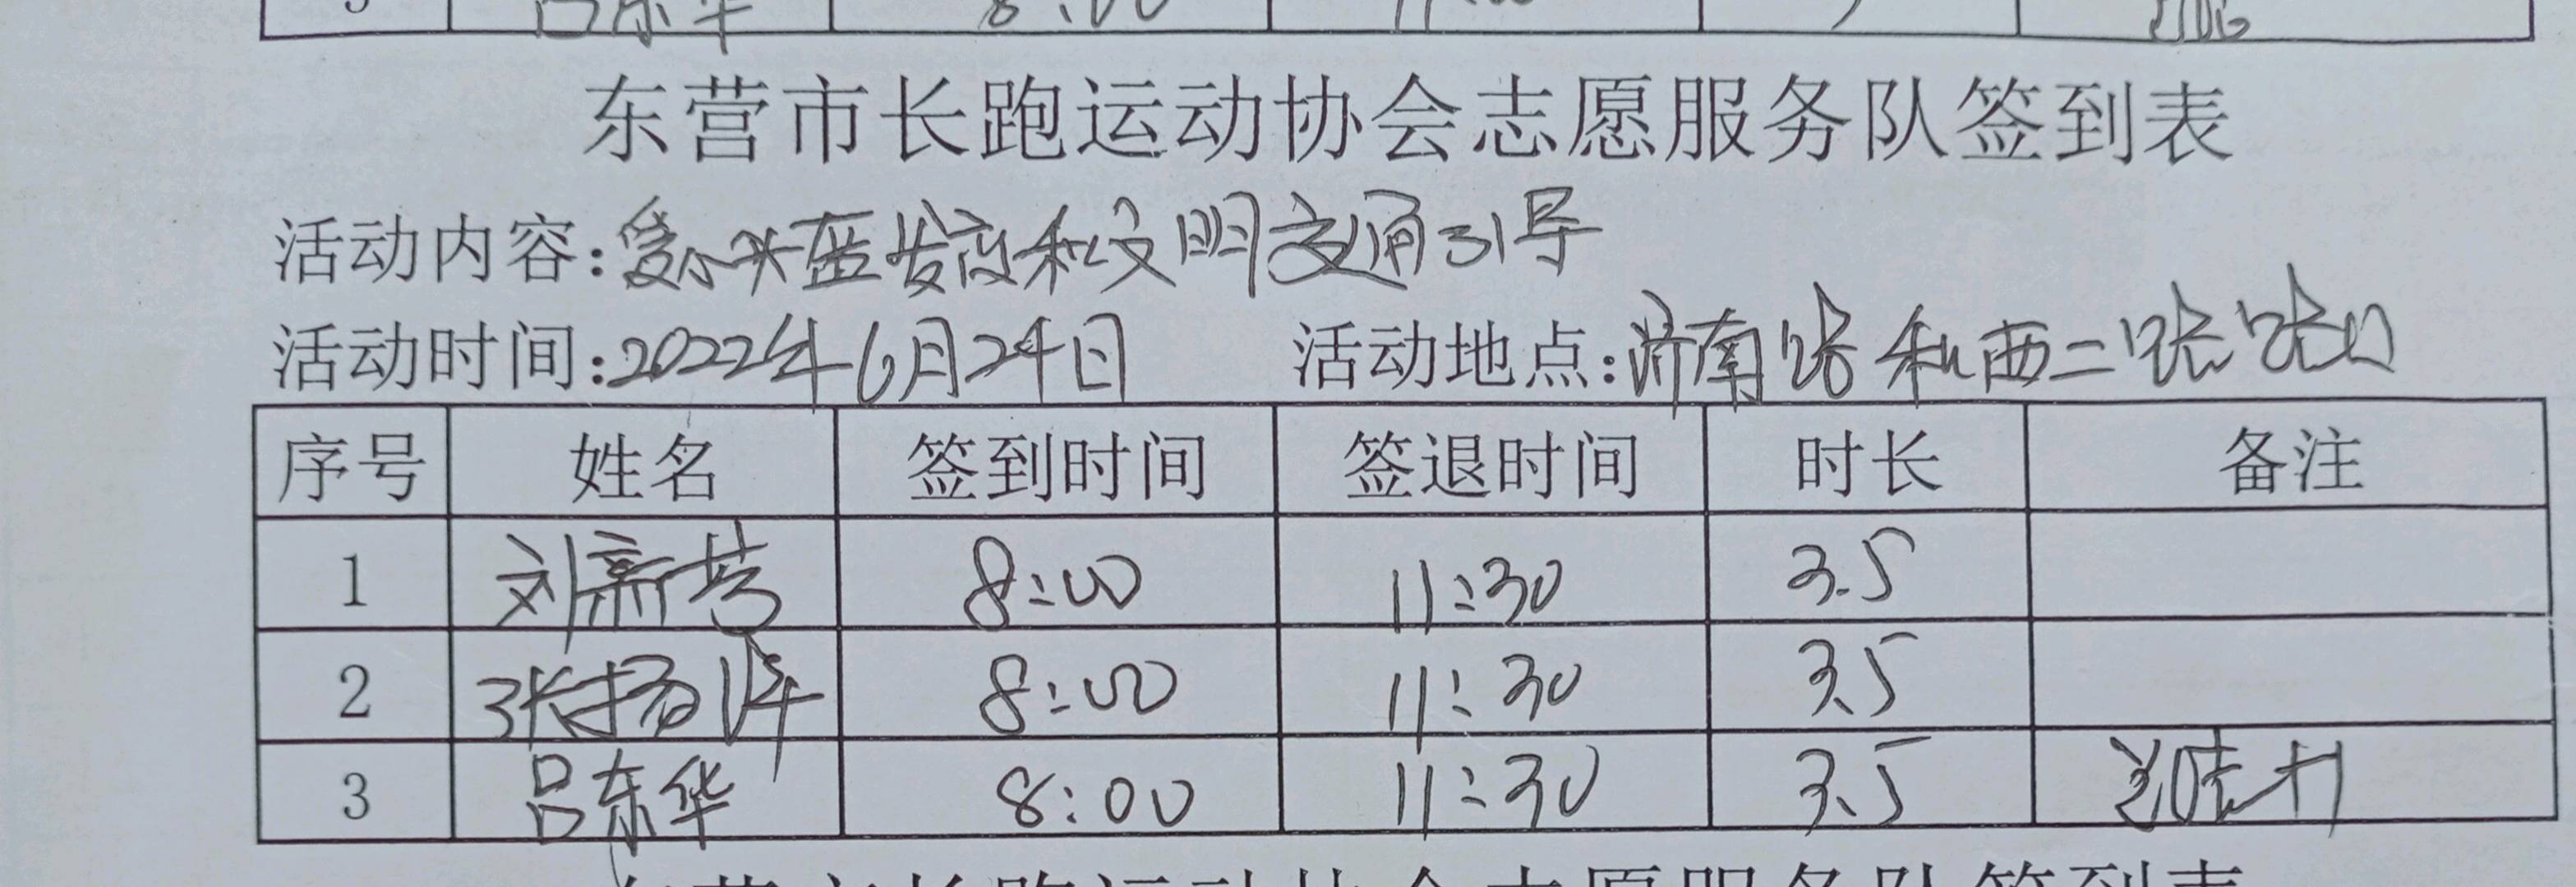 吕东华 8:00
东营市长跑运动协会志愿服务队签到表
活动内容:爱心头盔发放和文明交通引导
活动时间:2022年6月24日 活动地点:济南路和西二路路口
序号 姓名 签到时间 签退时间 时长 备注
1 刘新芳 8:00 11:30 3.5
2 张扬 8:00 11:30 3.5
3 吕东华 8:00 11:30 3.5
东营市长跑运动协会志愿服务队签到表